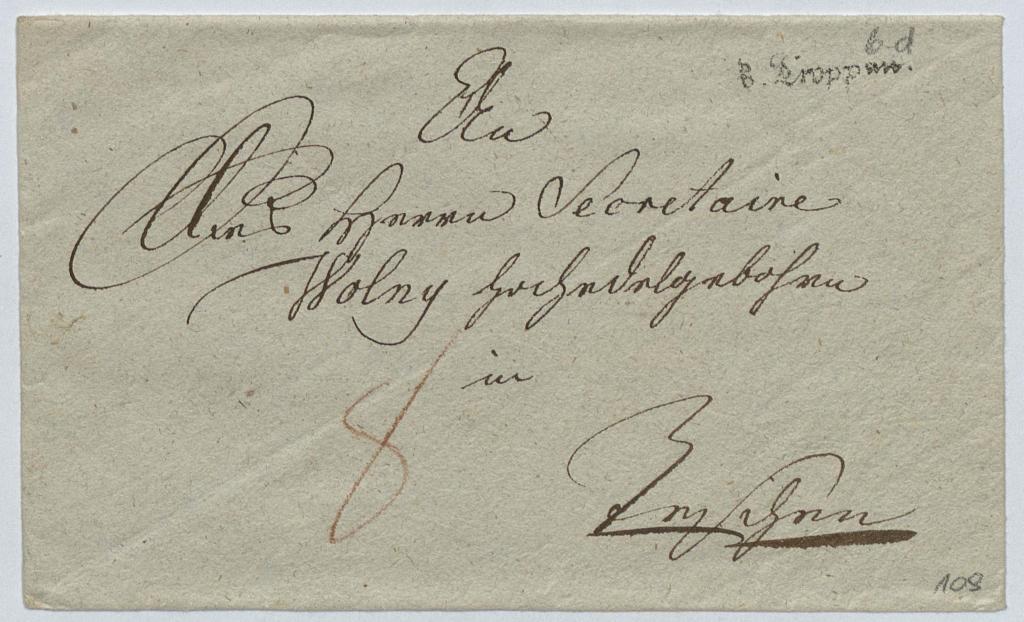 6 d
v. Troppau.
An
des Herrn Secretaire
Wolny Hochedelgebohrn
in
Teschen
8
108